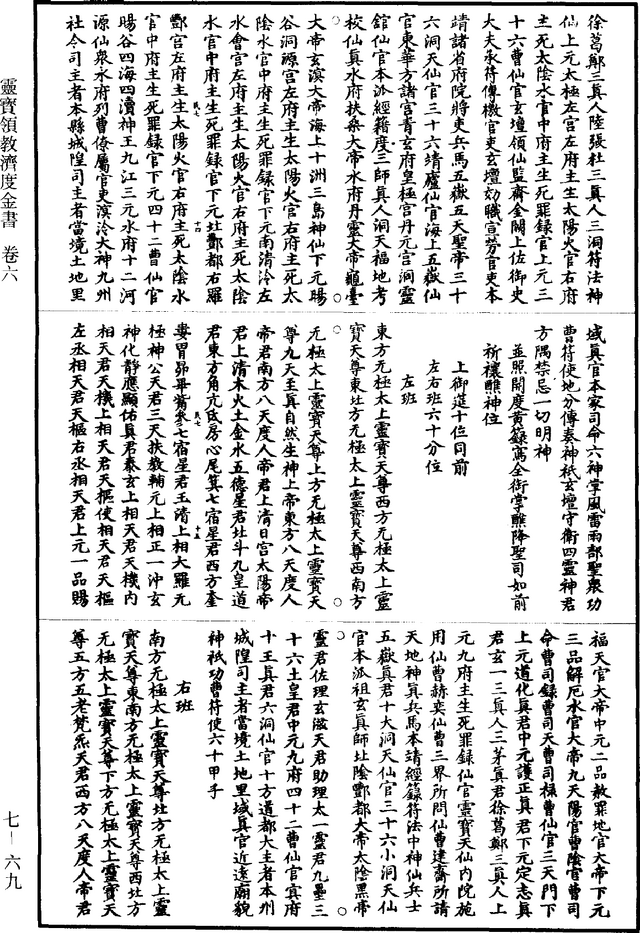 徐葛鄭三眞人陸張杜三眞人三洞符法神
仙上元太極左宫左府主生太陽火官右府
主死太陰水官中府主生死罪録官上元三
十六曹仙官玄壇領仙監齋金闕上佐御史
大夫永符傳檄官吏玄壇効職宣勞官吏本
靖諸省府院將吏兵馬五嶽五天聖帝三十
六洞天仙官三十六靖廬仙官海上五嶽仙
官東華方諸宫青玄府皇極宫丹元宫洞靈
舘仙官本𣲖經籍度三師眞人洞天福地考
校仙眞水府扶桑大帝水府丹靈大帝龜臺
大帝玄溟大帝海上十洲三島神仙下元暘
谷洞源宫左府主生太陽火官右府主死太
陰水官中府主生死罪録官下元南清泠左
水會宫左府主生太陽火官右府主死太陰
水官中府主生死罪録官下元北酆都右羅
酆宫左府主生太陽火官右府主死太陰水
官中府主生死罪録官下元四十二曹仙官
暘谷四海四瀆神王九江三元水府十二河
源仙衆水府列曹僚屬官吏溟泠大神九州
社令司主者本縣城隍司主者當境土地里
域眞官本家司命六神掌風雷雨部聖衆功
曹符使地分傳奏神祇玄壇守衛四靈神君
方隅禁忌一切明神
並照開度黄籙寫全銜掌醮降聖司如前
祈禳醮神位
上御筵十位同前
左右班六十分位
左班
東方无極太上靈寳天尊西方无極太上靈
寳天尊東北方无極太上靈寳天尊西南方
无極太上靈寳天尊上方无極太上靈寳天
尊九天王眞自然生神上帝東方八天度人
帝君南方八天度人帝君上清日宫太陽帝
君上清木火土金水五德星君北斗九皇道
君東方角亢氐房心尾箕七宿星君西方奎
婁胃昴畢觜參七宿星君玉清上相大羅元
極神公天君三天扶教輔元上相正一沖玄
神化静應顯佑眞君泰玄上相天君天機内
相天君天機上相天君天樞使相天君天樞
左丞相天君天樞右丞相天君上元一品賜
福天官大帝中元二品赦罪地官大帝下元
三品解厄水官大帝九天陽官曹陰官曹司
命曹司録曹司天曹司禄曹仙官三天門下
上元道化眞君中元護正眞君下元定志眞
君玄一三眞人三茅眞君徐葛鄭三眞人上
元九府主生死罪録仙官靈寳天仙内院施
用仙曹赫奕仙曹三界所問仙曹建齋所請
天地神眞兵馬本靖經籙符法中神仙兵士
五嶽眞君十大洞天仙官三十六小洞天仙
官本𣲖祖玄眞師北陰酆都大帝太陰黑帝
靈君佐理玄滋天君助理太一靈君九壘三
十六土皇君中元九府四十二曹仙官㝠府
十王眞君六洞仙官十方道都大主者本州
城隍司主者當境土地里域眞官近遠廟貌
神祇功曹符使六十甲子
右班
南方无極太上靈寳天尊北方无極太上靈
寳天尊東南方无極太上靈寳天尊西北方
无極太上靈寳天尊下方无極太上靈寳天
尊五方五老梵炁天君西方八天度人帝君
靈寶領教濟度金書 卷六
七－六九